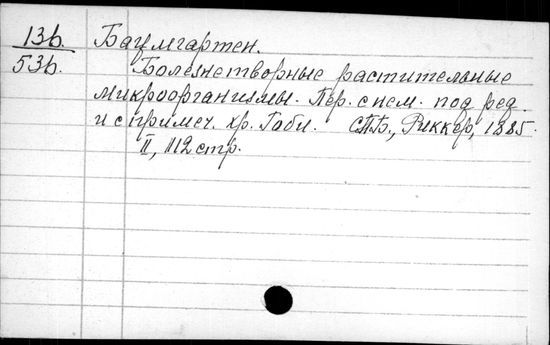 13b. Баумгартен.
53b. Болезнетворные растительные
микроорганизмы. Пер. с нем. под ред.
и с примеч. хр. Габи. СПБ., Риккер, 1885.
II, 112 стр.